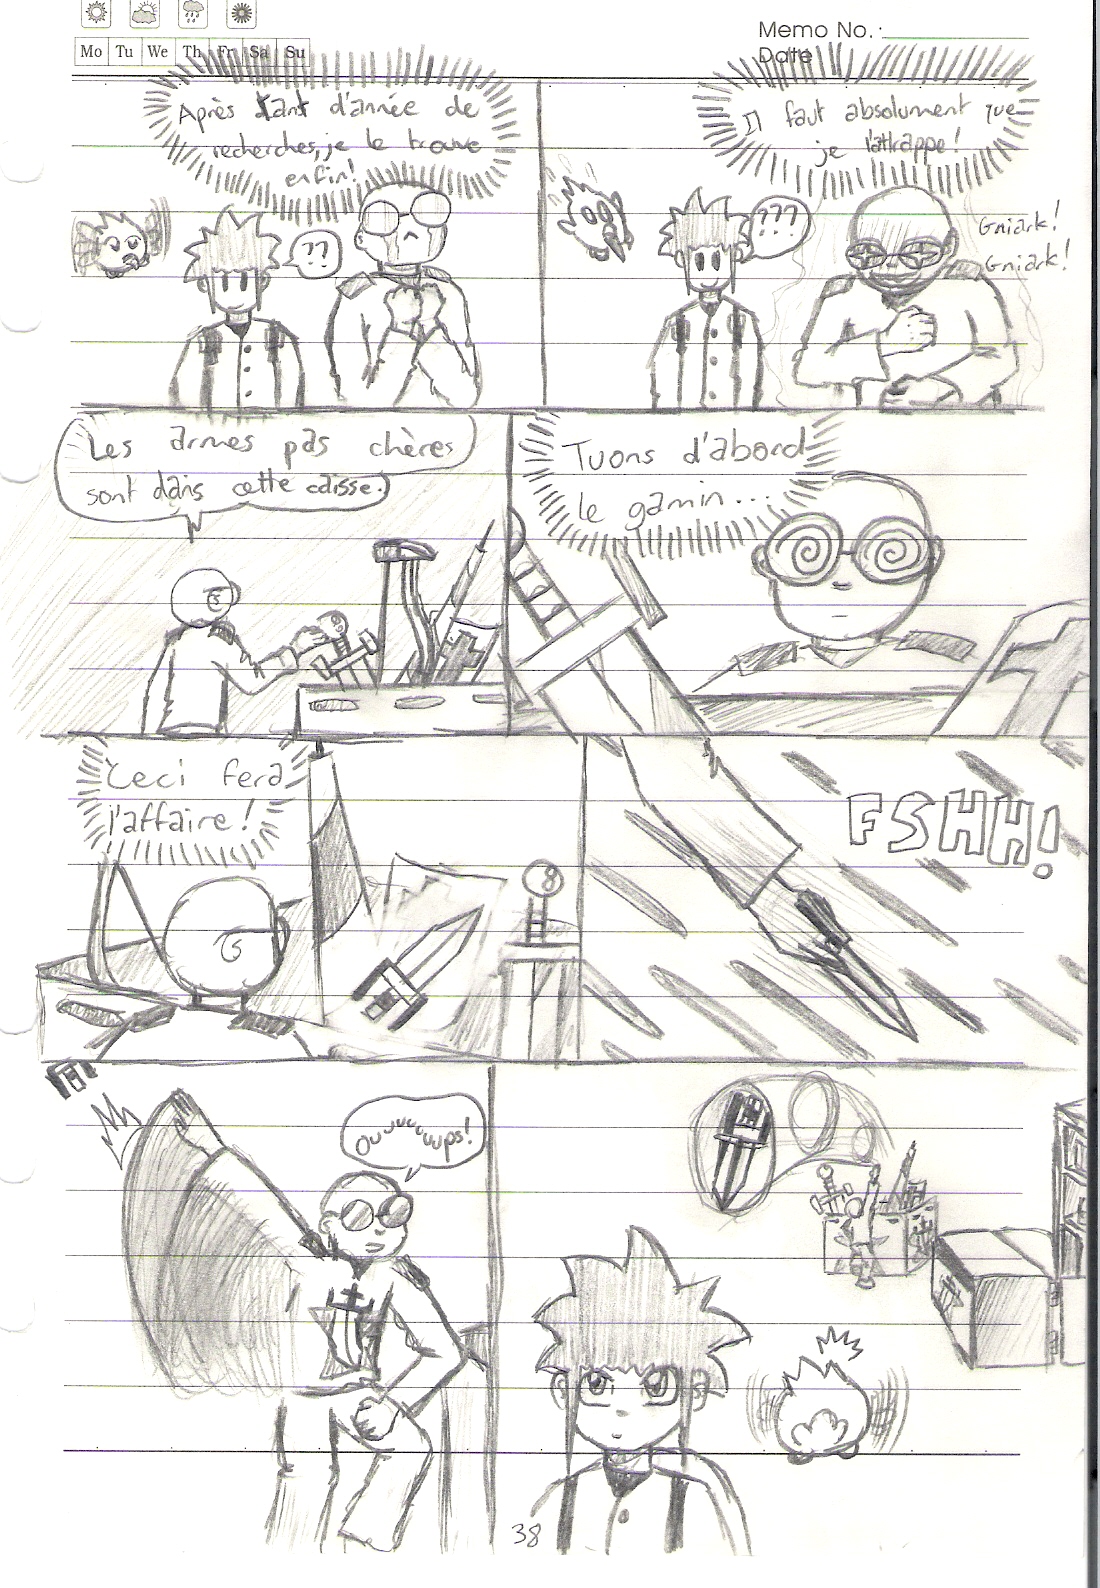 Memo No. :
Mo Tu We Th Fr Sa Su
Date
Après tant d'année de
recherches, je le trouve
enfin!
??
Il faut absolument que
je l'attrappe!
???
Gniark!
Gniark!
Les armes pas chères
sont dans cette caisse.
Tuons d'abord
le gamin...
Ceci fera
l'affaire!
FSHH!
Ouuuuuups!
38